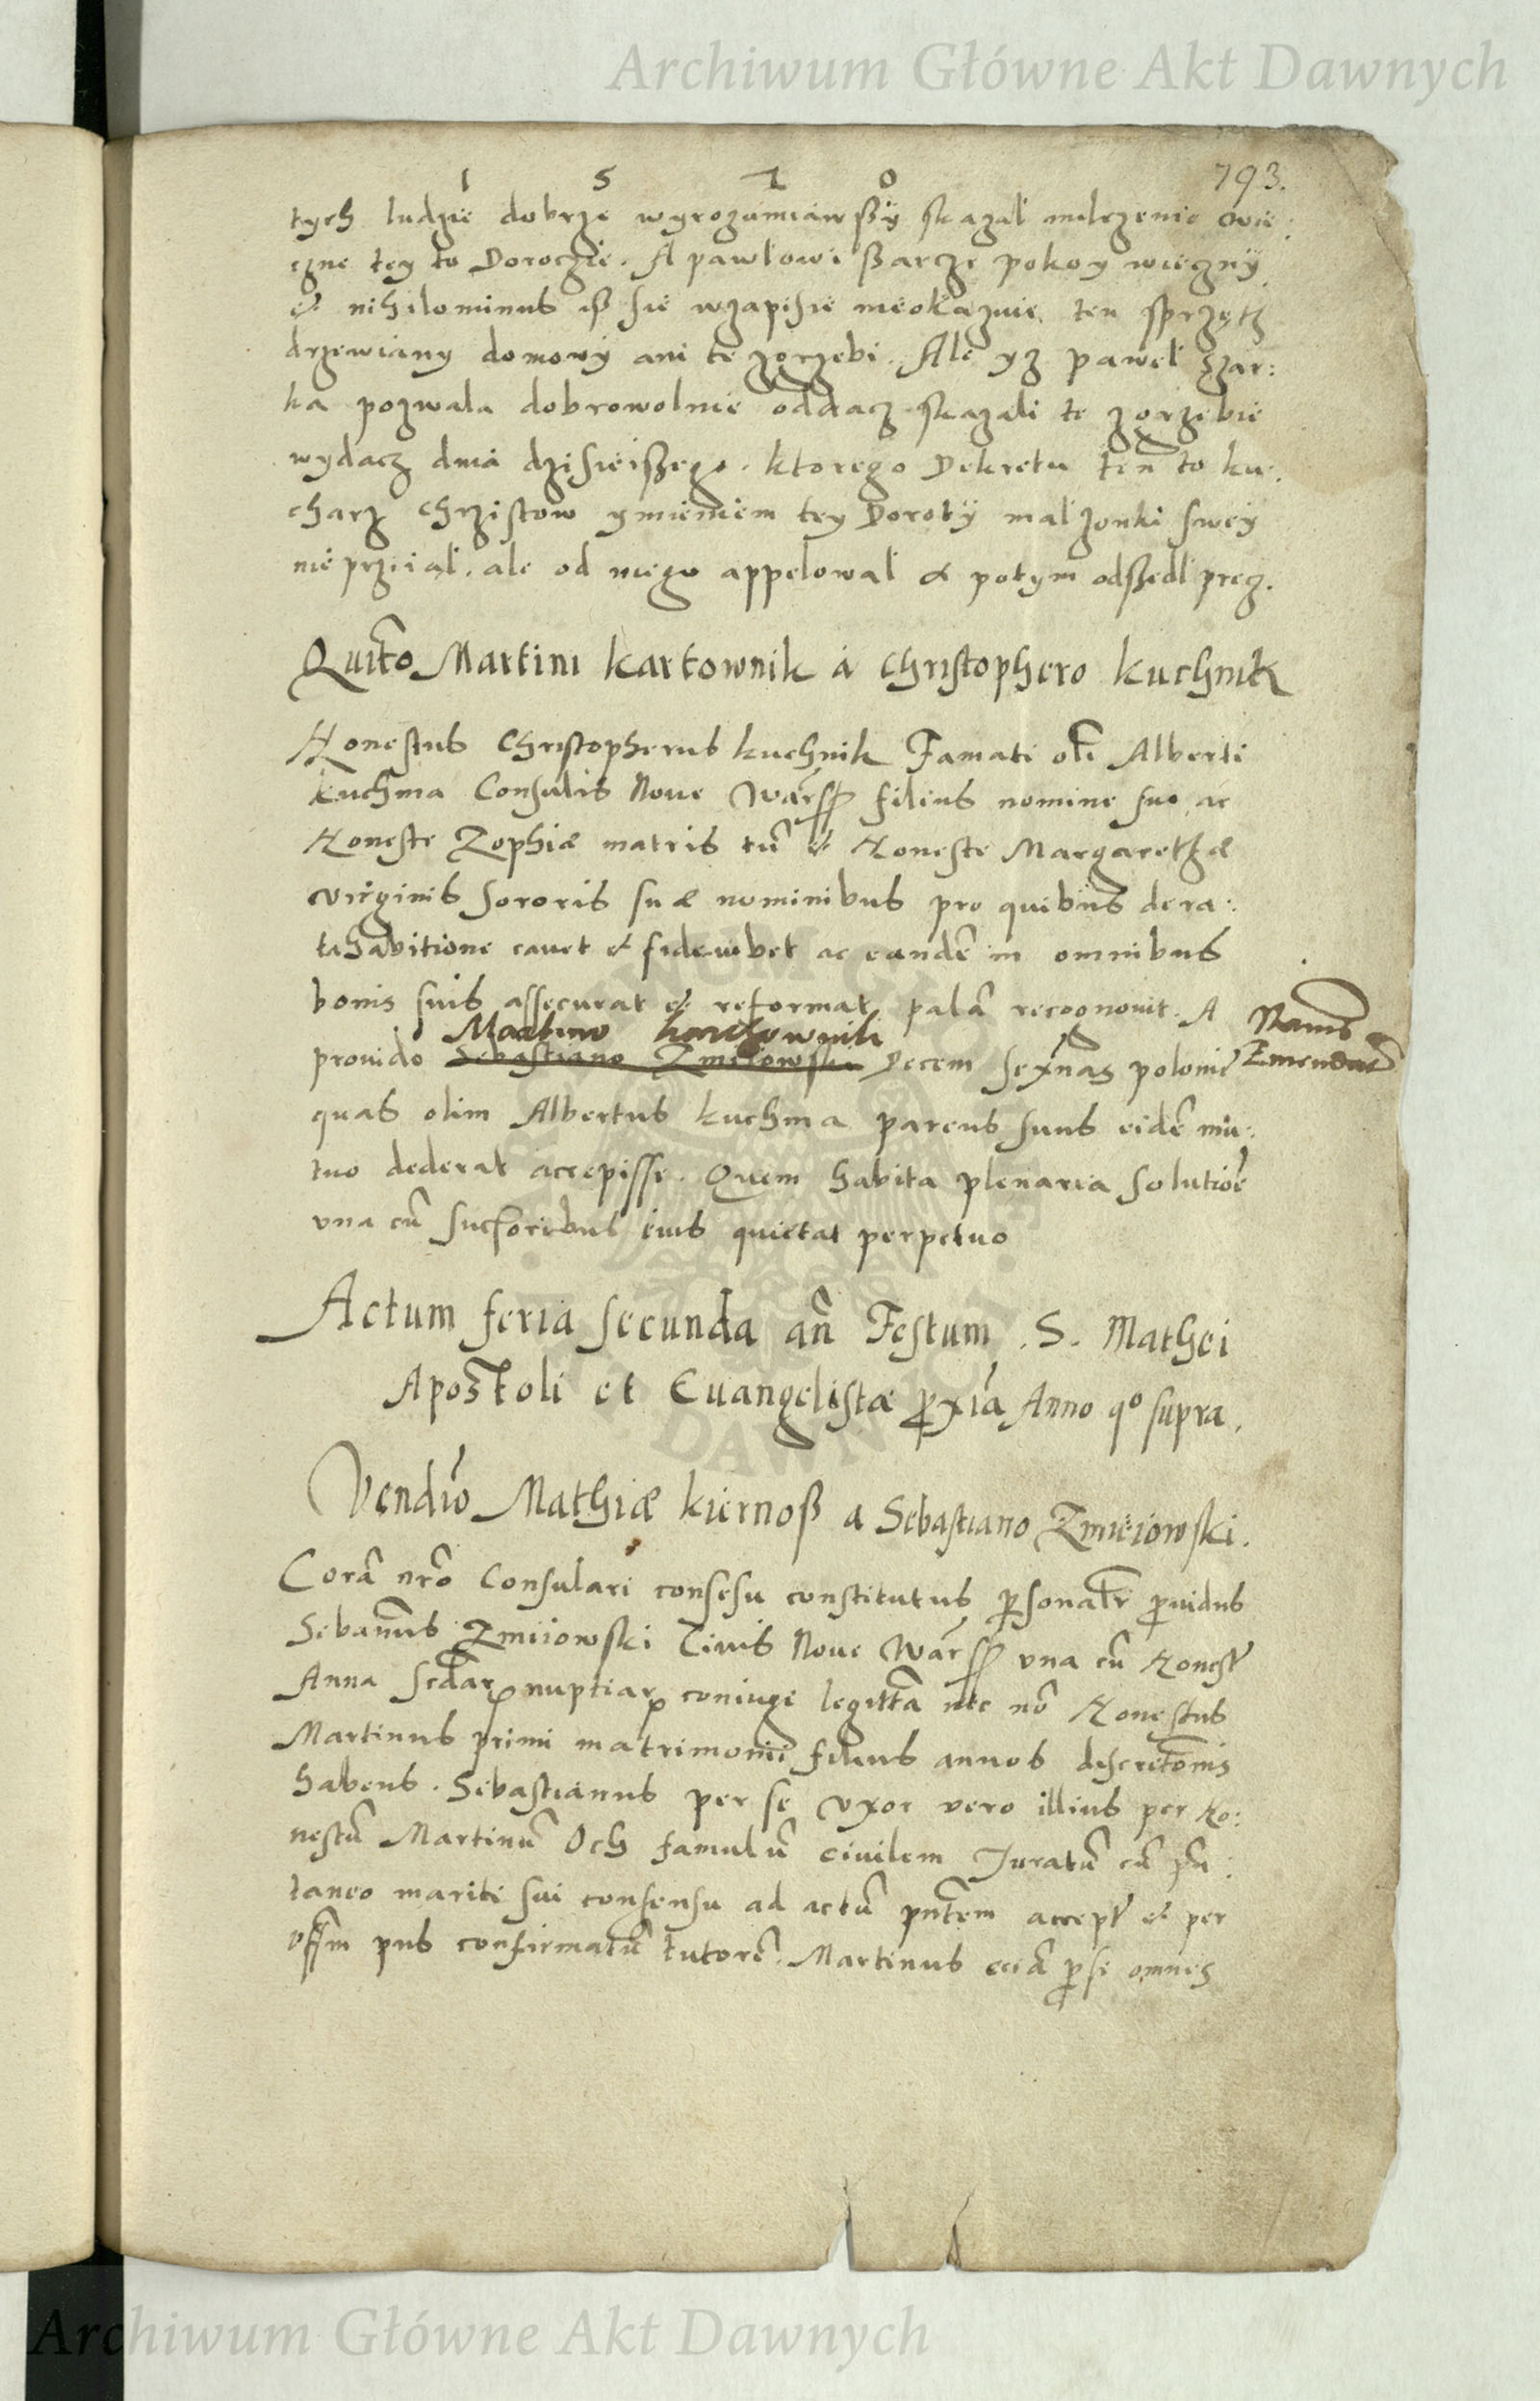 Archiwum Główne Akt Dawnych
1 5 7 0 793.
tych ludzie dobrze wyrozumiawßÿ skazal milczenie wie:
czne tey to Doroczie. A pawlowi ßarcze pokoy wieczny
& nihilominus iß sie wzapisie nieokazuie ten sprzętz
drzewiany domowÿ ani te zgrzebi. Ale yz pawel szar:
ka pozwala dobrowolnie oddacz skazali te zgrzebie
wydacz dnia dzisieißego. ktorego Dekretu ten to ku:
charz Chrzistow ymieniem tey Dorotÿ malzonki swey
nie prziial. ale od niego appelowal & potym odßedl precz.
Quitto Martini kartownik á Christophero kuchnik
Honestus Christopherus kuchnik Famati oli Alberti
kuchma Consulis Noue Wars filius nomine suo ac
Honeste Zophiæ matris tu & Honeste Margarethæ
virginis sororis suæ nominibus pro quibus de ra:
tahabitione cauet & fideiubet ac eande in omnibus
bonis suis assecurat & reformat palã recognouit. A
Martino kartownik
Nomē
Emendatū
prouido Sebastiano Zmiiowski Decem sexnas poloni
quas olim Albertus kuchma parens suus eidē mu:
tuo dederat accepisse. Quem habita plenaria solutiōe
vna cū sucsoribus eius quietat perpetuo
Actum feria secunda añ Festum S. Mathei
Apostoli et Euangelistæ pxiã Anno qo supra.
Venditio Mathiæ kiernoß a Sebastiano Zmieiowski.
Corã nrõ Consulari consesu constitutus psonalr puidus
Sebanus Zmiiowski Ciuis Noue Wars vna cū Honest
Anna scdar nuptiar coniuge legitta nec nõ Honestus
Martinus primi matrimonii filius annos discretonis
habens. Sebastianus per se vxor vero illius per Ho:
nestū Martinū Och famulū ciuilem Juratū cū
taneo mariti sui consensu ad actū pntem accept & per
offm pns confirmatū tutorē. Martinus eciã p se omnes
Archiwum Główne Akt Dawnych